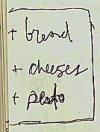 + bread
+ cheeses
+ pesto